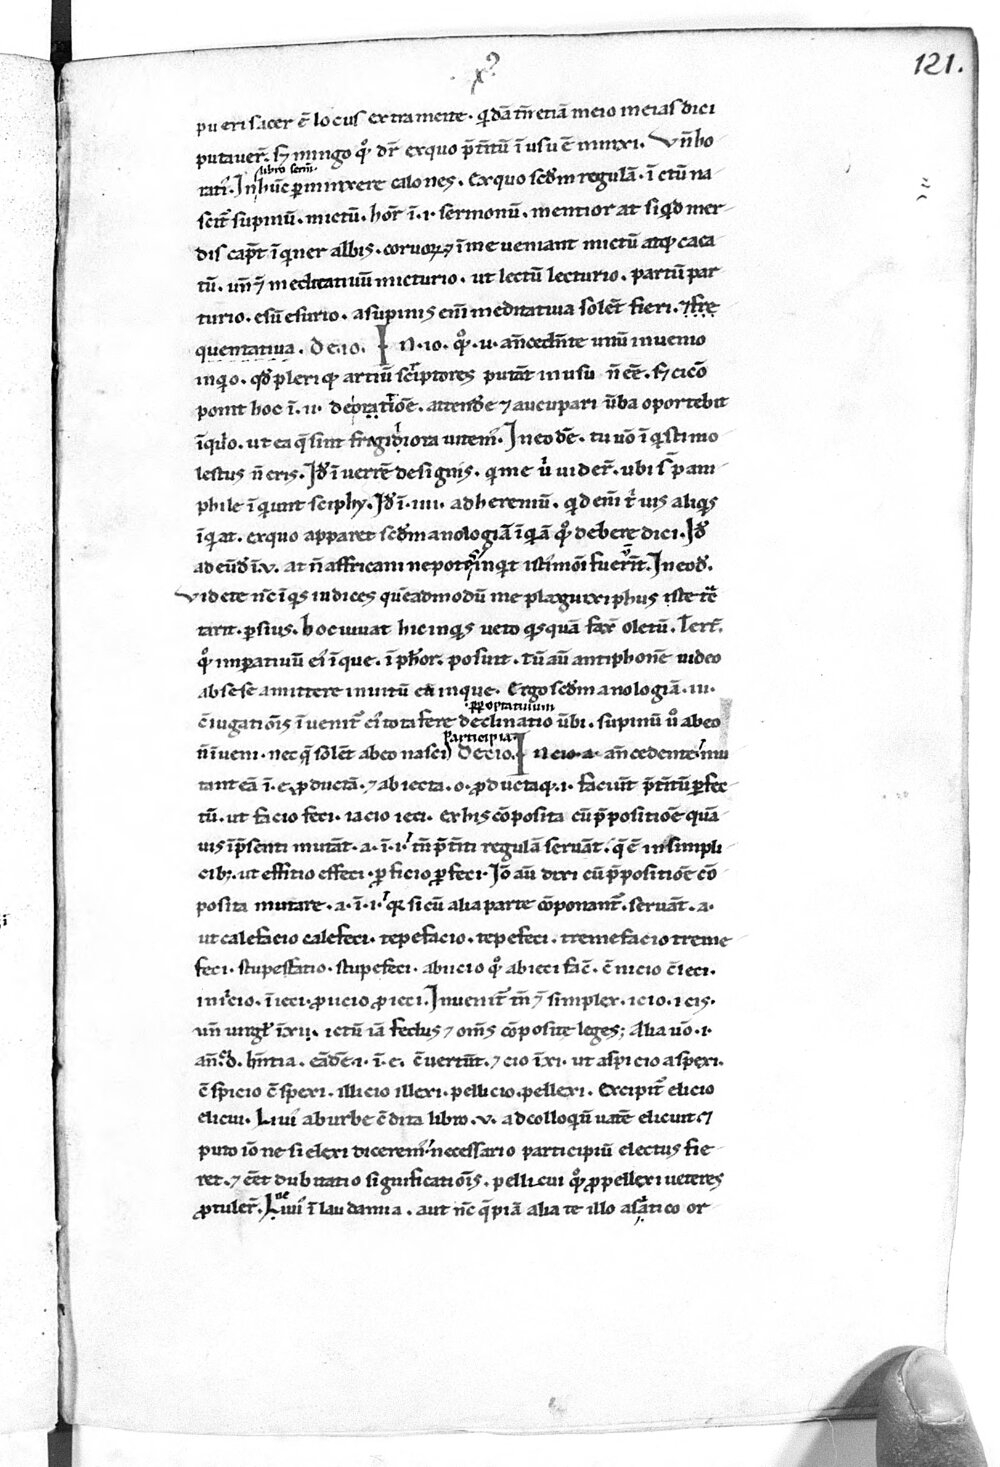 121.
x⁹
pueri sacer ē locus extra meite. q̇dā tn̄ etiā meio meias dici
putauer̄. sꝫ mingo qͦ dr̄ exquo p̄titū ī usu ē minxi. Vn̄ ho
libro serm̄.
rati. In hūc ꝑminxere calones. Exquo scd̄m regulā. ī ctū na
scit̄ supinū. mictū. hor̄ ī .i. sermonū. mentior at siqd mer
dis cap̄t īqner albis. coruoꝝ ⁊ ī me ueniant mictū atqꝫ caca
tū. un̄ ⁊ meditatiuū micturio. ut lectū lecturio. partū par
turio. esū esurio. a supinis eni meditatiua solēt fieri. ⁊ fre
quentatiua. De .io. IN .io. qͦ .u. an̄cedn̄te unū inuenio
inqo. qd̄ pleriqꝫ artiū scriptores putāt in usu n̄ eē. sꝫ cicō
ponit hoc ī .ii. de oratiōe. attendēe ⁊ aucupari ūba oportebit
īqo. ut ea q̄ sint frigidiora uitem. In eodē. tu uō īqt mo
lestus n̄ eris. Id̄ ī uerrē de signis. qi me u̇ uider̄. ubi s̄ pam
phile īqiunt sciphy. Id̄ ī .iiii. ad heremiū. qd eni t̄ uis aliqs
īqiat. exquo apparet scd̄m anologiā īqiā qͦ debere dici. Id̄
ad eūd̄ ī .v. at n̄ affricani nepotes inqt isti mōi fuerīt. In eod̄.
Videte nc̄ īqs iudices quēadmodū me plaguxiphus iste tē
tarit. ꝑsius. hoc iuuat hic inqs ueto qsquā faxt oletū. Tert̄.
qͦ imperatiuū ei īque. ī phor. posuit. tū aū antiphonē uideo
ab sese amittere inuitū eā inque. Ergo scd̄m anologiā .iii.
ꝑ optatiuum
c̄iugatiōis īuenit̄ ei tota fere declinatio ūbi. supinū u̇o ab eo
participia
n̄ īueni. nec q̄ solēt ab eo nasci De cio. IN cio .a. an̄cedente mu
tant eā ī .e. ꝓductā. ⁊ abiecta .o. ꝓductaqꝫ .i. faciūt p̄titū ꝑfec
tū. ut facio feci. iacio ieci. ex his cōposita cū p̄positiōe quā
uis ī p̄senti mutāt .a. ī .i. tn̄ p̄titi regulā seruāt. q̄ ē in simpli
cibꝫ. ut effitio effeci. ꝑficio ꝑfeci. Iō aū dixi cū p̄positiōe cō
posita mutare .a. ī .i. qꝛ si cū alia parte cōponant̄. seruāt .a.
ut calefacio calefeci. tepefacio. tepefeci. tremefacio treme
feci. stupesfatio. stupefeci. abiicio qͦ abieci fac̄. c̄iicio c̄ieci.
iniicio. īieci. ꝓiicio ꝓieci. Inuenit̄ tn̄ ⁊ simplex. icio .icis.
un̄ uirgł ī xii. ictū iā fedus ⁊ om̄s cōposite leges; Alia uō .i.
an̄ .o. hn̄tia. eādē .i. ī .e. c̄uertūt. ⁊ cio ī xi. ut aspicio aspexi.
c̄spicio c̄spexi. illicio illexi. pellicio. pellexi. Excipit̄ elicio
elicui. Liui ab urbe c̄dita libro .v. ad colloqū uatē elicuit. ⁊
puto iō ne si elexi dicerem necessario participiū electus fie
ret. ⁊ eēt dubitatio significatiōis. pellicui qͦ ꝓ pellexi ueteres
ꝓtuler̄. Liuine ī laudamia. aut nc̄ q̄piā alia te illo asiatico or